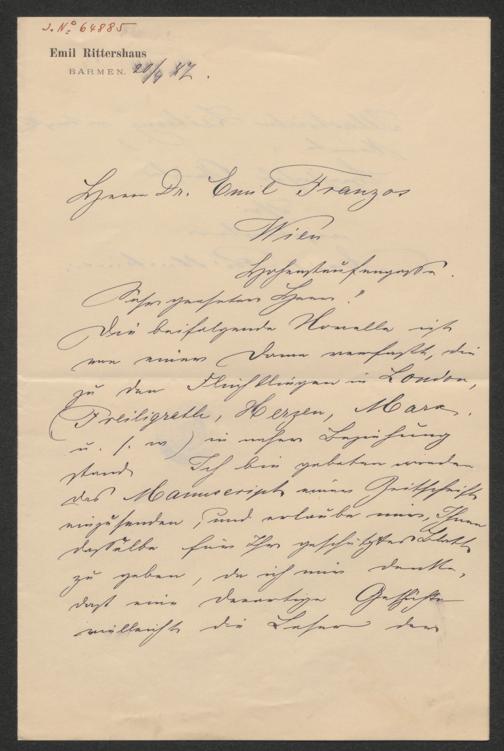 J. No 64885
Emil Rittershaus
BARMEN. 20/4 87.
Herrn Dr. Emil Franzos
Wien
Hohenstaufengasse.
Sehr geehrter Herr!
Die beifolgende Novelle ist
von einer Dame verfaßt, die
zu den Flüchtlingen in London,
(Freiligrath, Herzen, Marx.
u. s. w) in naher Beziehung
stand. Ich bin gebeten worden
das Manuscript einer Zeitschrift
einzusenden, und erlaube mir, Ihnen
dasselbe für Ihr geschätztes Blatt
zu geben, da ich mir denke,
daß eine derartige Geschichte
vielleicht die Leser der